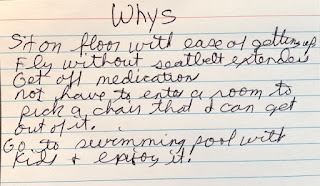 Whys
Sit on floor with ease of getting up
Fly without seatbelt extender
Get off medication
not have to enter a room to
pick a chair that I can get
out of it.
Go to swimming pool with
kids + enjoy it!